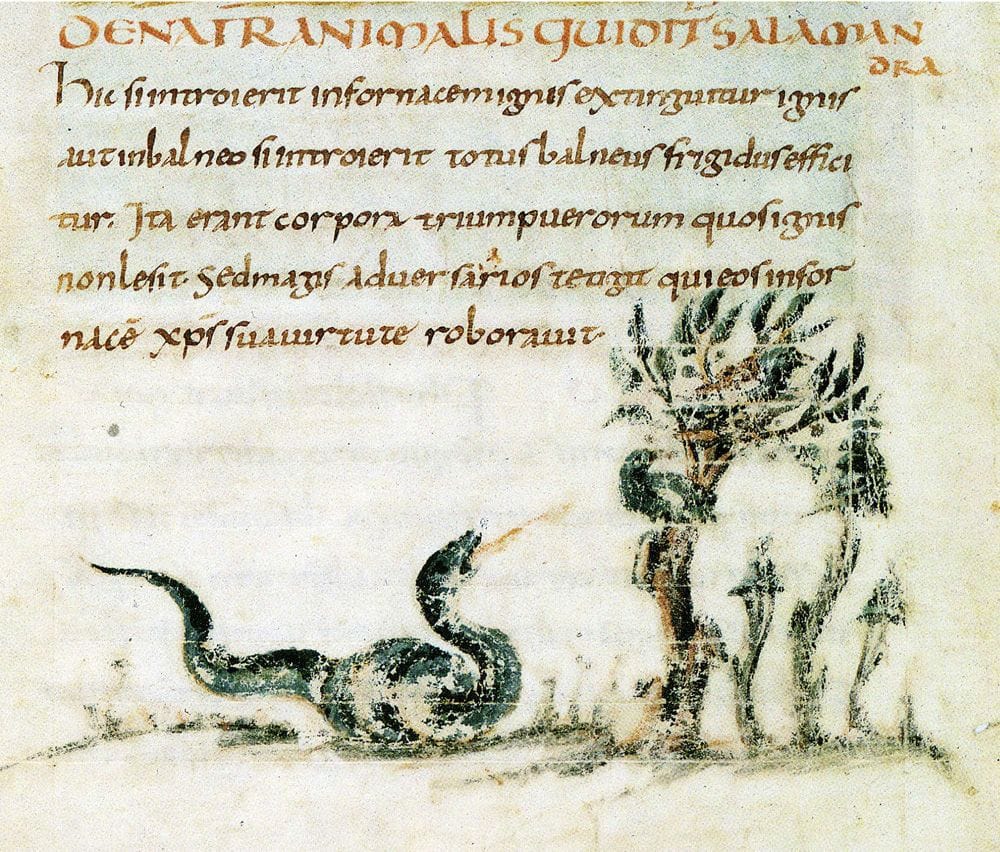 DE NATR ANIMALIS QUI DIT SALAMAN
DRA
Hic si introierit in fornacem ignis extinguitur ignis
aut in balneo si introierit totus balneus frigidus effici
tur. Ita erant corpora trium puerorum quos ignis
non lesit. Sed magis adversarios tetigit qui eos in for
nacē xp̄s sua virtute roboravit.